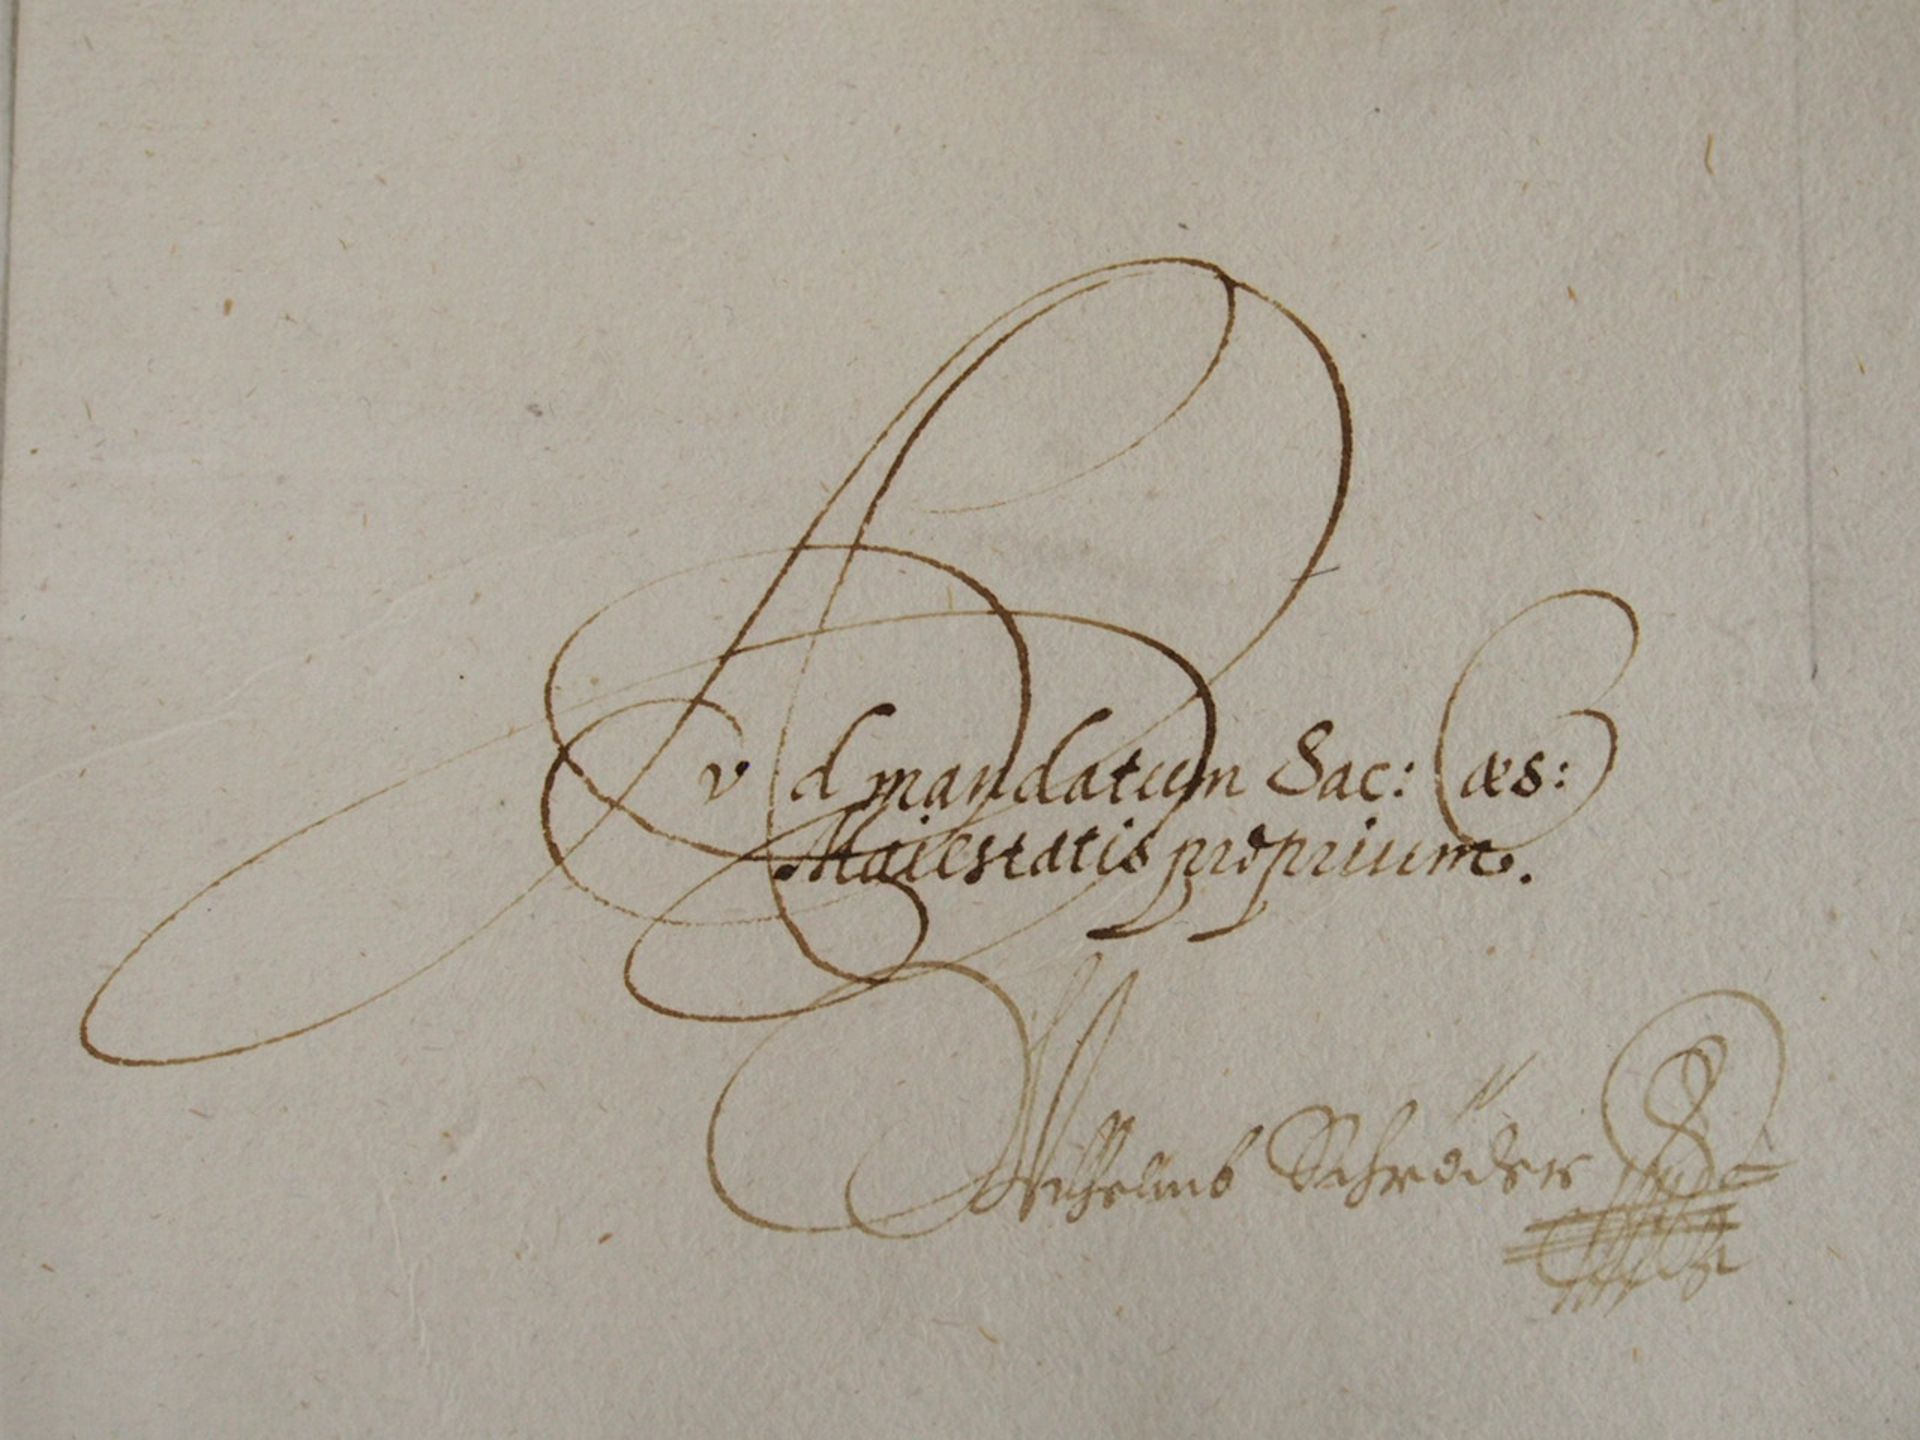 Ad mandatum Sac: Cæs:
Maiestatis proprium.
Wilhelmb Schröder